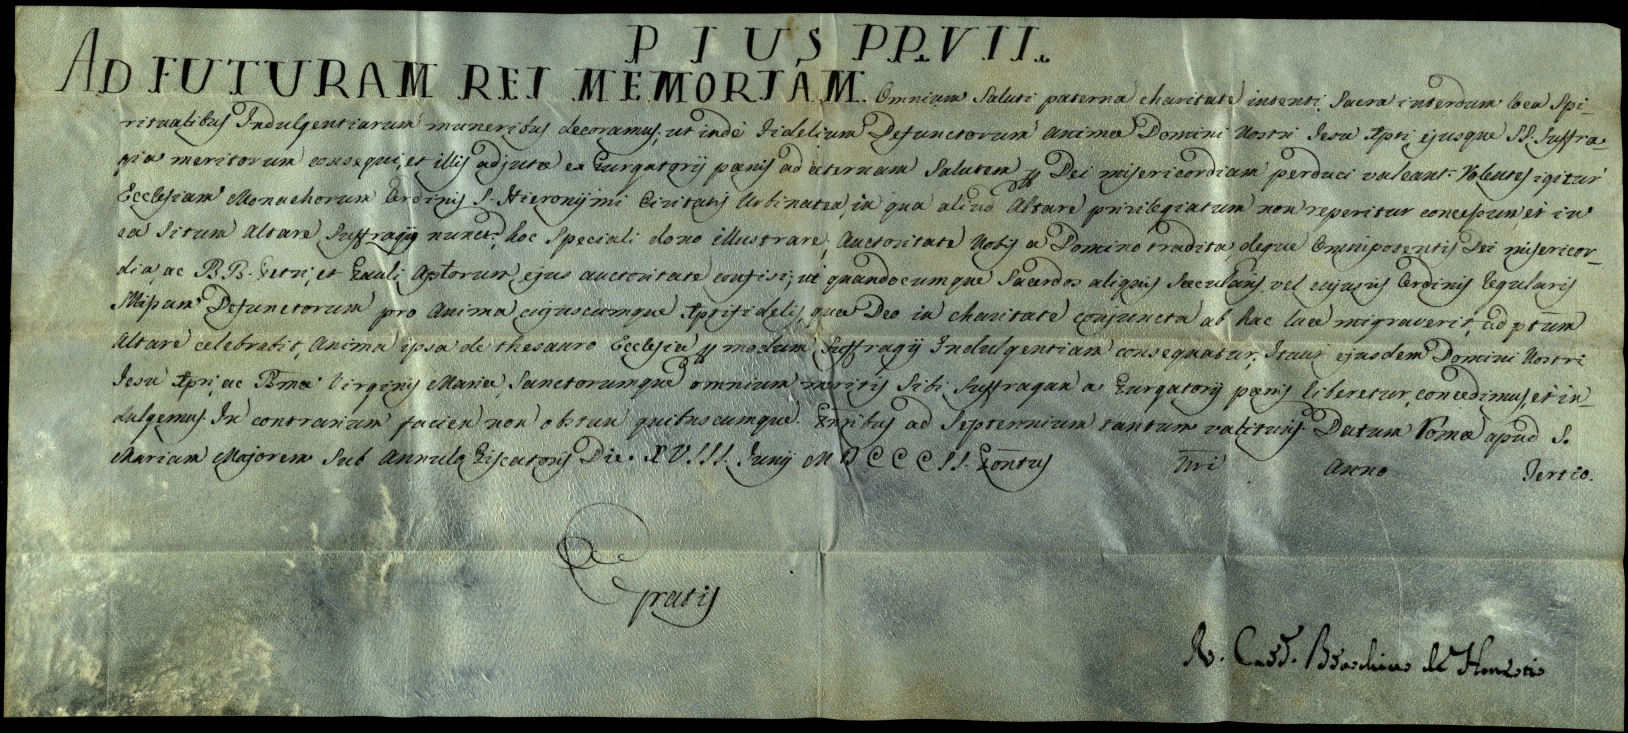 PIUS PP. VII.
AD FUTURAM REI MEMORIAM. Omnium Saluti paterna charitate intenti, Sacra interdum loca Spi-
ritualibus Indulgentiarum muneribus decoramus, ut inde Fidelium Defunctorum animæ Domini Nostri Jesu Xpri, ejusque SS. Suffra-
gia meritorum consequi, et illis adjutæ ex Purgatorij pœnis ad æternam Salutem p Dei misericordiam perduci valeant. Volentes igitur
Ecclesiam Monachorum Ordinis S. Hieronijmi Civitatis Urbinaten, in qua aliud Altare privilegiatum non reperitur concessum, et in
ea Situm Altare Suffragij nunctum hoc Speciali dono illustrare, Auctoritate Nobis a Domino tradita, deque Omnipotentis Dei misericor-
dia, ac BB. Petri, et Pauli, Aptorum ejus auctoritate confisi, ut quandocumque Sacerdos aliquis Sæcularis, vel cujusvis Ordinis Regularis
Missam Defunctorum pro Anima cujuscumque Xptifidelis, quæ Deo in charitate conjuncta ab hac luce migraverit, ad ptum
Altare celebrabit, Anima ipsa de thesauro Ecclesiæ p modum Suffragij Indulgentiam consequatur, Itaut ejusdem Domini Nostri
Jesu Xpri, ac Bmæ Virginis Mariæ, Sanctorumque omnium meritis Sibi Suffragan a Purgatorij pœnis liberetur, concedimus, et in-
dulgemus. In contrarium facien non obstan quibuscumque. Pntibus ad Septennium tantum valituris. Datum Romæ apud S.
Mariam Majorem Sub Annulo Piscatoris Die XVIII. Junij MDCCCII. Pontus Nri Anno Tertio.
Gratis
R. Card. Braschius de Honestis